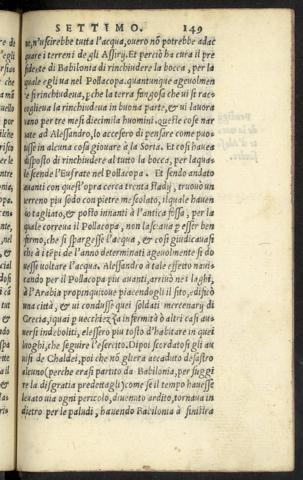 SETTIMO. 149
ue, n'uscirebbe tutta l'acqua, ouero nõ potrebbe adac
quare i terreni de gli Assirÿ. Et perciò ha cura il pre
sidente di Babilonia di rinchiudere la bocca, per la
quale egli ua nel Pollacopa. quantunque ageuolmen
te si rinchiudeua, pche la terra fangosa che ui si rac=
coglieua la rinchiudeua in buona parte, & ui lauora
uano per tre mesi diecimila huomini. queste cose nar
rate ad Alessandro, lo accesero di pensare come puo=
tusse in alcuna cosa giouare à la Soria. Et cosi haueа
disposto di rinchiudere al tutto la bocca, per laqua=
le scende l'Eufrate nel Pollacopa. Et sendo andato
auanti con quest'opra cerca trenta stadÿ, trouò un
terreno piu sodo con pietre mescolato, ilquale hauen
do tagliato, & posto innanti à l'antica fossa, per la
quale correua il Pollacopa, non lasciaua p esser ben
firmo, che si spargesse l'acqua, & cosi giudicaua si
che à i tẽpi de l'anno determinati ageuolmente si do
uesse uoltare l'acqua. Alessandro à tale effetto naui=
cando per il Pollacopa piu auanti, arriuò ne i laghi,
à l'Arabia propinqui, oue piacendogli il sito, edificò
una città, & ui condusse quei soldati mercenarÿ di
Grecia, iquai p uecchiezza infermità ò altri casi au=
uersi indeboliti, elessero piu tosto d'habitare in quei
luoghi, che seguire l'esercito. Dipoi scordatosi gli au
uisi de Chaldei, poi che nõ gliera accaduto desastro
alcuno (perche erasi partito da Babilonia, per fuggi
re la disgratia predettagli) come se il tempo hauesse
leuato uia ogni pericolo, diuenuto ardito, tornaua in
dietro per le paludi, hauendo Babilonia à sinistra